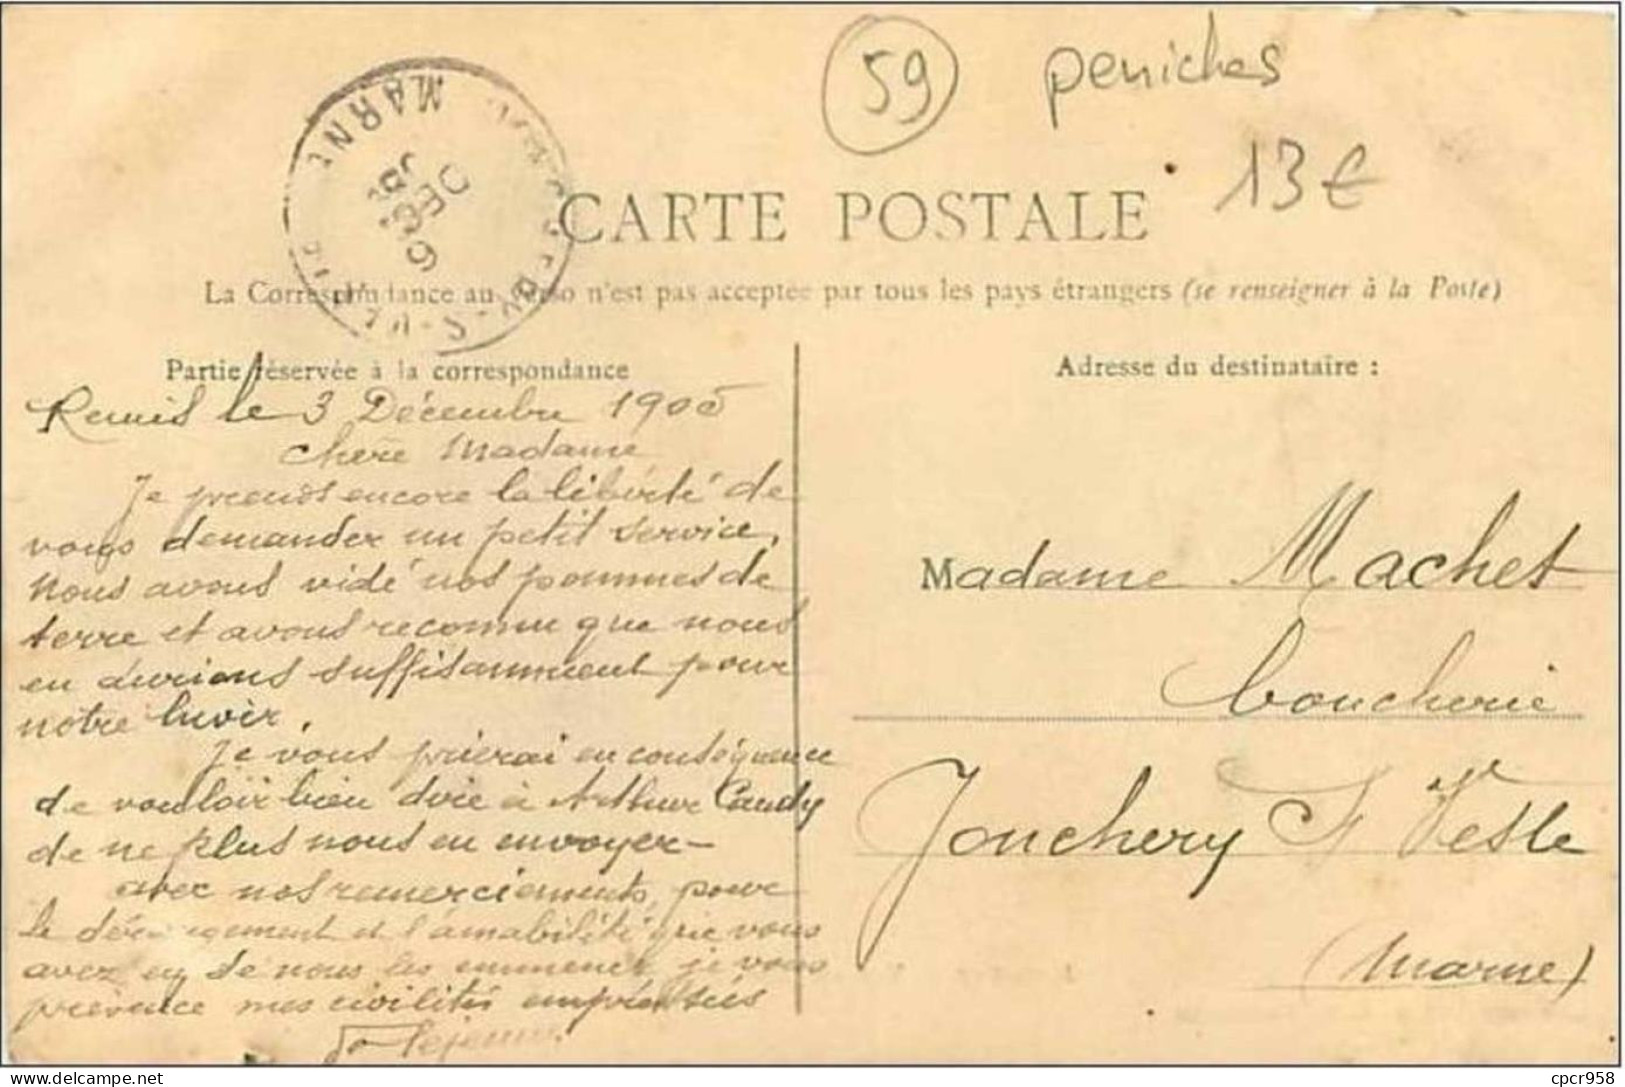 59 peniches
13€
MARNE
6
DEC
05
CARTE POSTALE
La Correspondance au verso n'est pas acceptée par tous les pays étrangers (se renseigner à la Poste)
Partie réservée à la correspondance
Adresse du destinataire :
le 3 Décembre 1905
chère Madame
Je prends encore la liberté de
vous demander un petit service,
Nous avons vidé nos pommes de
terre et avons reconnu que nous
en aurions suffisamment pour
notre hiver.
Je vous prierai en conséquence
de vouloir bien dire à Arthur Caudy
de ne plus nous en envoyer-
avec nos remerciements, pour
le dérangement et l'amabilité que vous
avez eu de nous les emmener, je vous
présence mes civilités empressées
Lejeune.
Madame Machet
boucherie
Jonchery S/ Vesle
(Marne)
delcampe.net
cpcr958